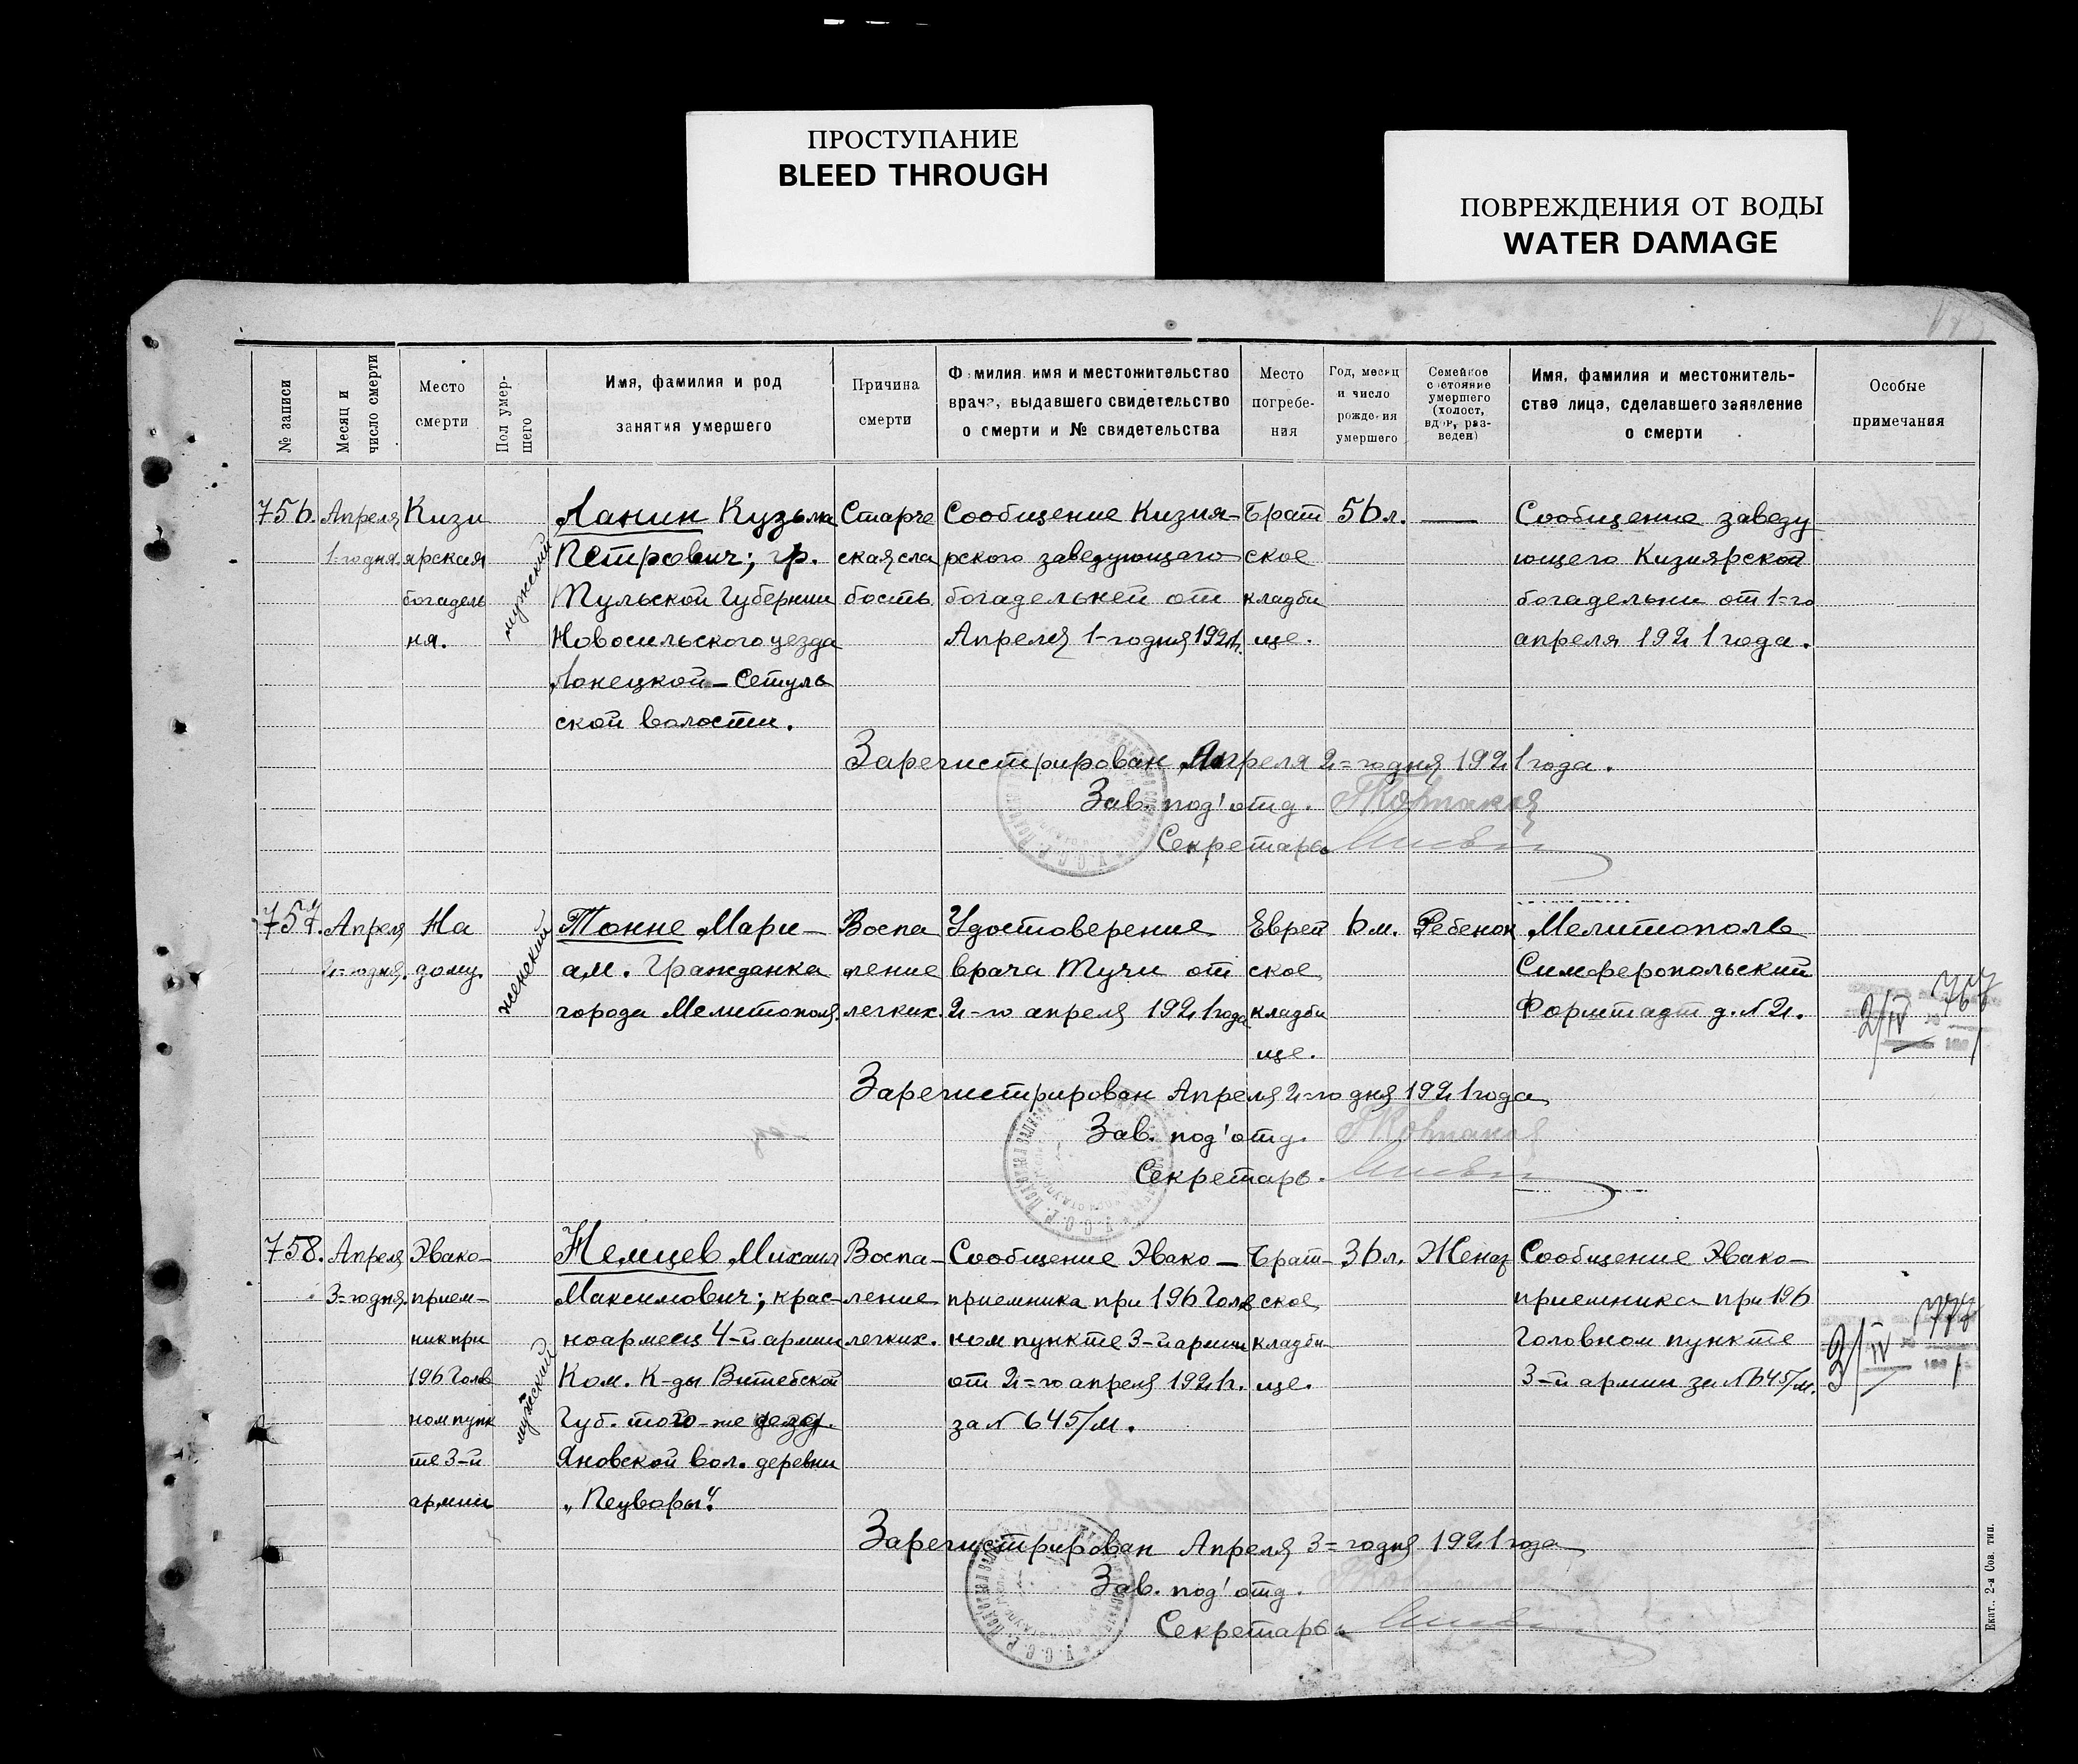 ПРОСТУПАНИЕ
BLEED THROUGH
ПОВРЕЖДЕНИЯ ОТ ВОДЫ
WATER DAMAGE
№ записи
Месяц и
число смерти
Место
смерти
Пол умер-
шего
Имя, фамилия и род
занятия умершего
Причина
смерти
Фамилия имя и местожительство
врача, выдавшего свидетельство
о смерти и № свидетельства
Место
погребе-
ния
Год, месяц
и число
рождения
умершего
Семейное
состояние
умершего
(холост,
вдов, раз-
веден)
Имя, фамилия и местожитель-
ства лица, сделавшего заявление
о смерти
Особые
примечания
756.
Апреля
1-го дня.
Кизи
ярская
богадель
ня.
мужский
Ланин Кузьма
Петрович; гр.
Тульской Губернии
Новосильского уезда
ской волости.
Старче
ская сла
бость.
Сообщение Кизия-
рского заведующаго
богадельней от
Апреля 1-го дня 1921г.
Брат
ское
кладби
ще.
56 л.
—
Сообщение заведу
ющего Кизиярской
богадельни от 1-го
апреля 1921 года.
Зарегистрирован Апреля 2-го дня 1921 года.
Зав. под'отд.
Секретарь
757.
Апреля
2-го дня.
На
дому.
женский
Тонне Мари-
ам. Гражданка
города Мелитополя.
Воспа
ление
легких.
Удостоверение
врача Тучи от
2-го апреля 1921 года
Еврей
ское
кладби
ще.
6 м.
Ребенок
Мелитополь
Симферопольский
Форштадт д. № 2.
2/IV
Зарегистрирован Апреля 2-го дня 1921 года
Зав. под'отд.
Секретарь.
758.
Апреля
3-го дня.
Эвако-
прием-
ник при
196 Голов
ном пунк
те 3-й
армии
мужский
Немцев Михаил
Максимович; крас-
ноармеец 4-й армии
Ком. К-ды Витебской
Губ. того-же уезд.
Яновской вол. деревни
Воспа-
ление
легких.
Сообщение Эвако-
приемника при 196 Голов
ном пункте 3-й армии
от 2-го апреля 1921г.
за № 645/м.
Брат-
ское
кладби-
ще.
36 л.
Женат
Сообщение Эвако-
приемника при 196
Головном пункте
3-й армии за № 645/м.
3/IV
Зарегистрирован Апреля 3-го дня 1921 года
Зав. под'отд.
Секретарь
Екат., 2-я Сов. тип.